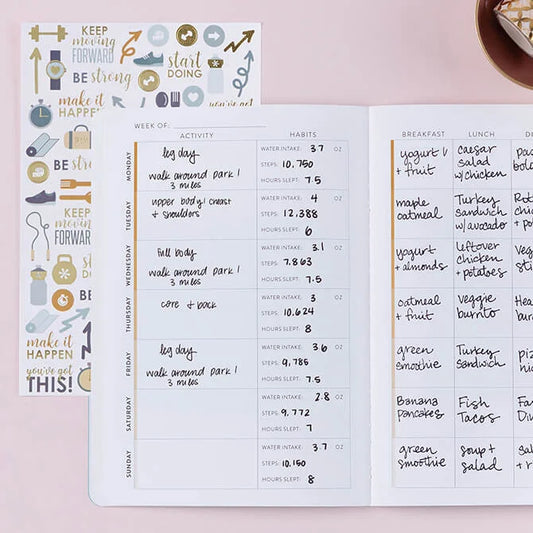 KEEP
moving
FORWARD
BE strong
start
DOING
make it
HAPPEN
you've got
BE STRONG
KEEP
moving
FORWARD
start
DOING
BE
make it
HAPPEN
you've got
THIS!
WEEK OF:
ACTIVITY HABITS
MONDAY
leg day
walk around park 1
3 miles
WATER INTAKE: 3.7 OZ
STEPS: 10,750
HOURS SLEPT: 7.5
TUESDAY
upper body/chest
& shoulders
WATER INTAKE: 4 OZ
STEPS: 12,388
HOURS SLEPT: 6
WEDNESDAY
full body
walk around park 1
3 miles
WATER INTAKE: 3.1 OZ
STEPS: 7,863
HOURS SLEPT: 7.5
THURSDAY
core & back
WATER INTAKE: 3 OZ
STEPS: 10,624
HOURS SLEPT: 8
FRIDAY
leg day
walk around park 1
3 miles
WATER INTAKE: 3.6 OZ
STEPS: 9,785
HOURS SLEPT: 7.5
SATURDAY
WATER INTAKE: 2.8 OZ
STEPS: 9,772
HOURS SLEPT: 7
SUNDAY
WATER INTAKE: 3.7 OZ
STEPS: 10,150
HOURS SLEPT: 8
BREAKFAST LUNCH
yogurt
+ fruit
caesar
salad
w/chicken
maple
oatmeal
Turkey
sandwich
w/avocado
yogurt
+ almonds
leftover
chicken
+ potatoes
oatmeal
+ fruit
veggie
burrito
green
smoothie
Turkey
Sandwich
Banana
pancakes
Fish
Tacos
green
smoothie
soup +
salad